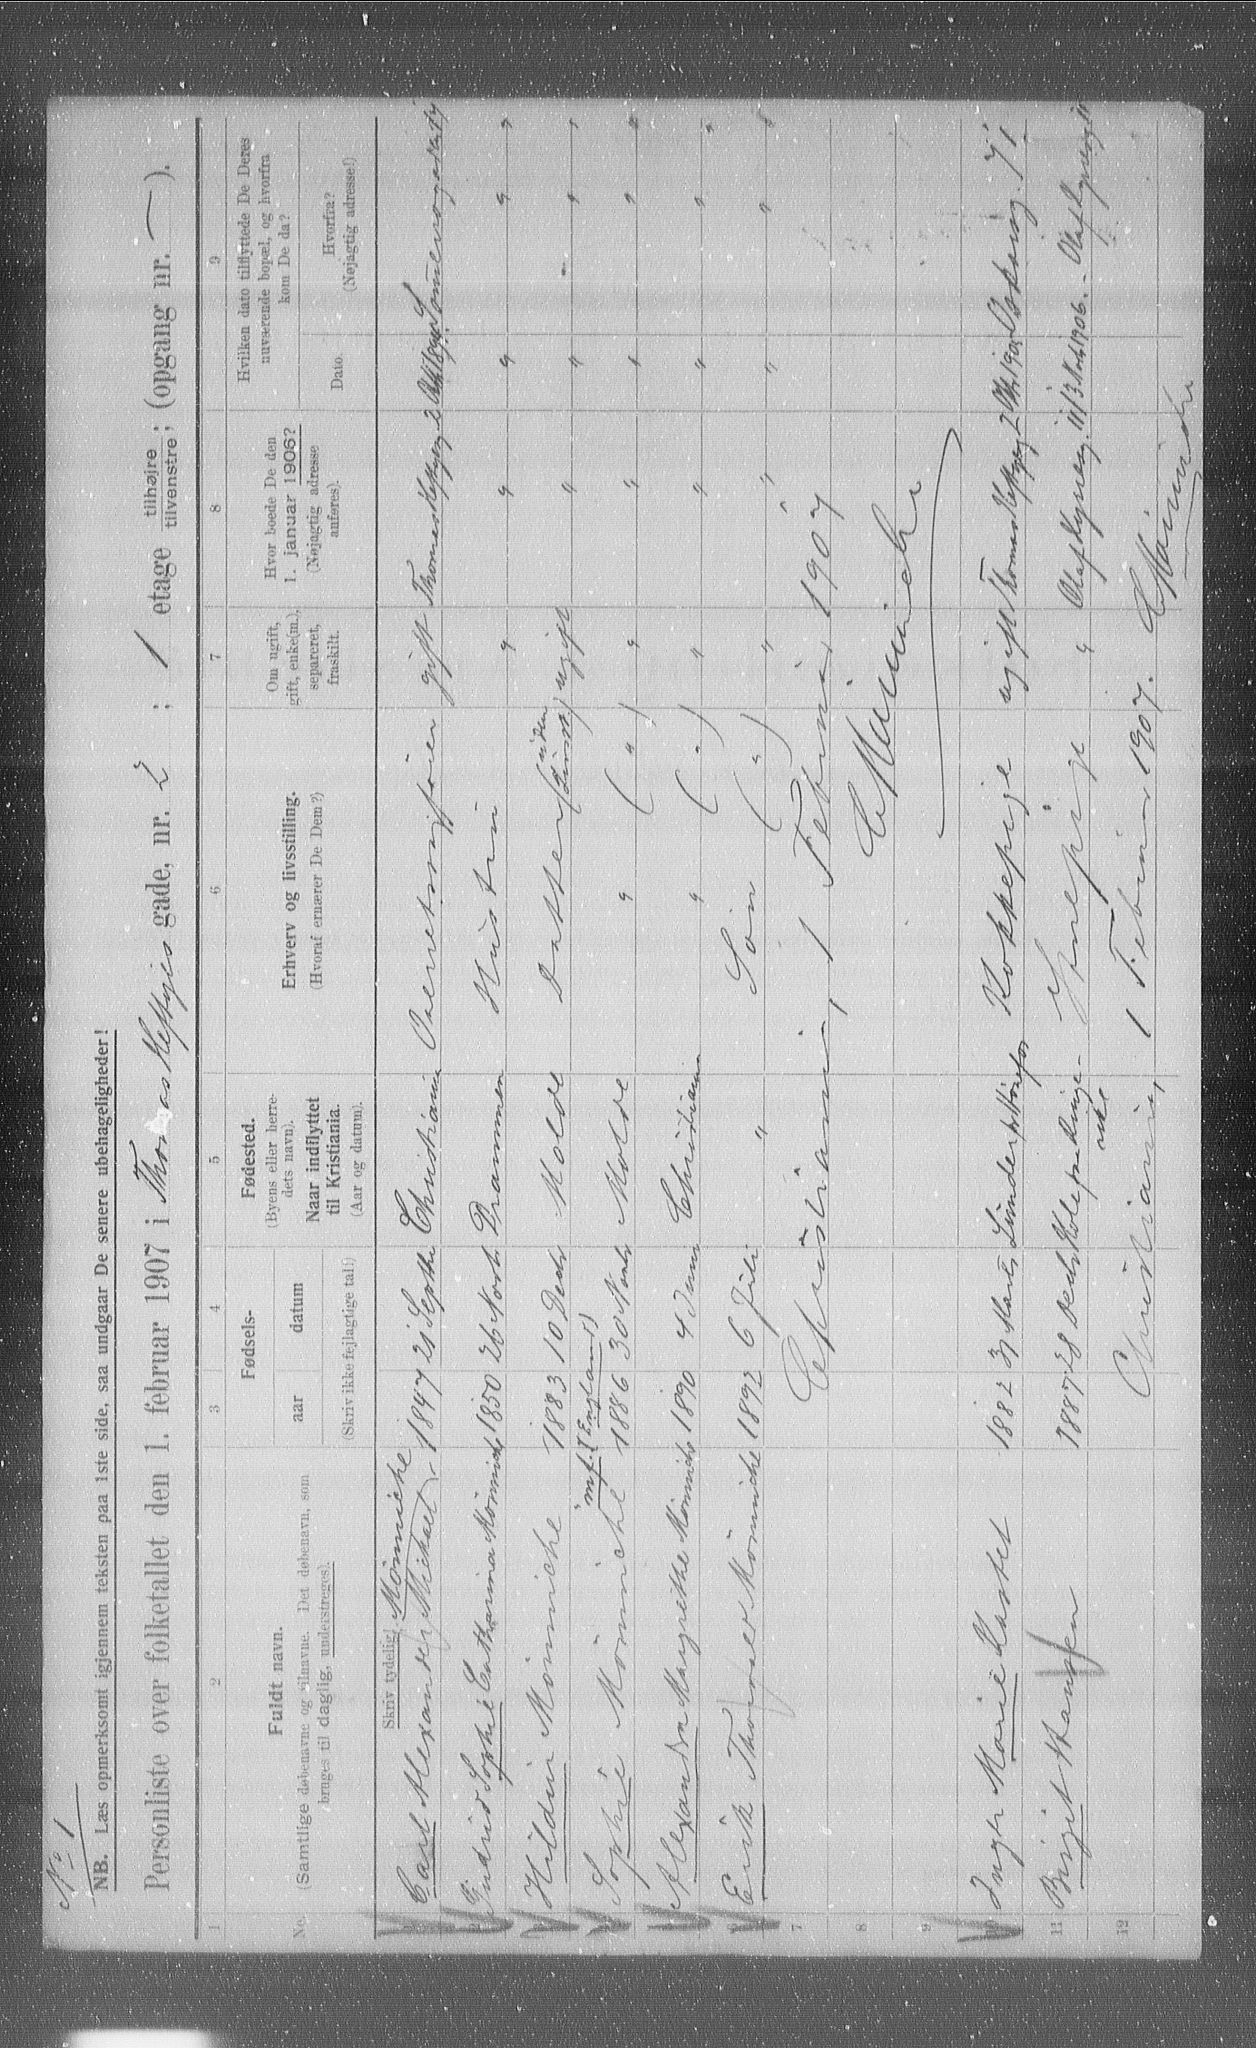 No 1
NB. Læs opmerksomt igjennem teksten paa 1ste side, saa undgaar De senere ubehageligheder!
Personliste over folketallet den 1. februar 1907 i Thomas Heftyes gade, nr. 2 ; 1 etage tilhøjre tilvenstre ; (opgang nr. — ).
1 2 3 4 5 6 7 8 9
No.
Fuldt navn.
(Samtlige døbenavne og tilnavne. Det døbenavn, som
bruges til daglig, understreges).
Skriv tydelig!
Fødsels-
aar datum
(Skriv ikke fejlagtige tal!)
Fødested.
(Byens eller herre-
dets navn).
Naar indflyttet
til Kristiania.
(Aar og datum).
Erhverv og livsstilling.
(Hvoraf ernærer De Dem?)
Om ugift,
gift, enke(m.),
separeret,
fraskilt.
Hvor boede De den
1. januar 1906?
(Nøjagtig adresse
anføres).
Hvilken dato tilflyttede De Deres
nuværende bopæl, og hvorfra
kom De da?
Dato.
Hvorfra?
(Nøjagtig adresse!)
Carl Alexander Michael Mønniche 1847 21 Septbr Christiania gift Thomas Heftyesg 2
2 Gudrid Sophie Cathrina Mønniche 1850 26 Novb Drammen Hustru " " " "
Hildur Mønniche 1883 10 Decb Molde Datter (uden ) ugift " " "
(mf. I England)
Sophie Mønniche 1886 30 Novb Molde " ( " ) " " " "
Alexandra Margrethe Mønniche 1890 4 Juni Christiania " ( " ) " " " "
Erik Thorvald Mønniche 1892 6 Juli " Søn ( " ) " " " "
7 Christiania, 1 Februar 1907
8 C Mønniche
9
10 Inger Marie 1882 31 Marts Hønefos Kokkepige ugift Thomas Heftyesg 2 Oscarsg. 71
11 Birgit Hansen 1887 28 Decb Hole Ringe-
rike " Olaf Kyrresg. 11 1906. Olaf Kyrresg 11
12 Christiania, 1 Februar 1907. C Mønniche